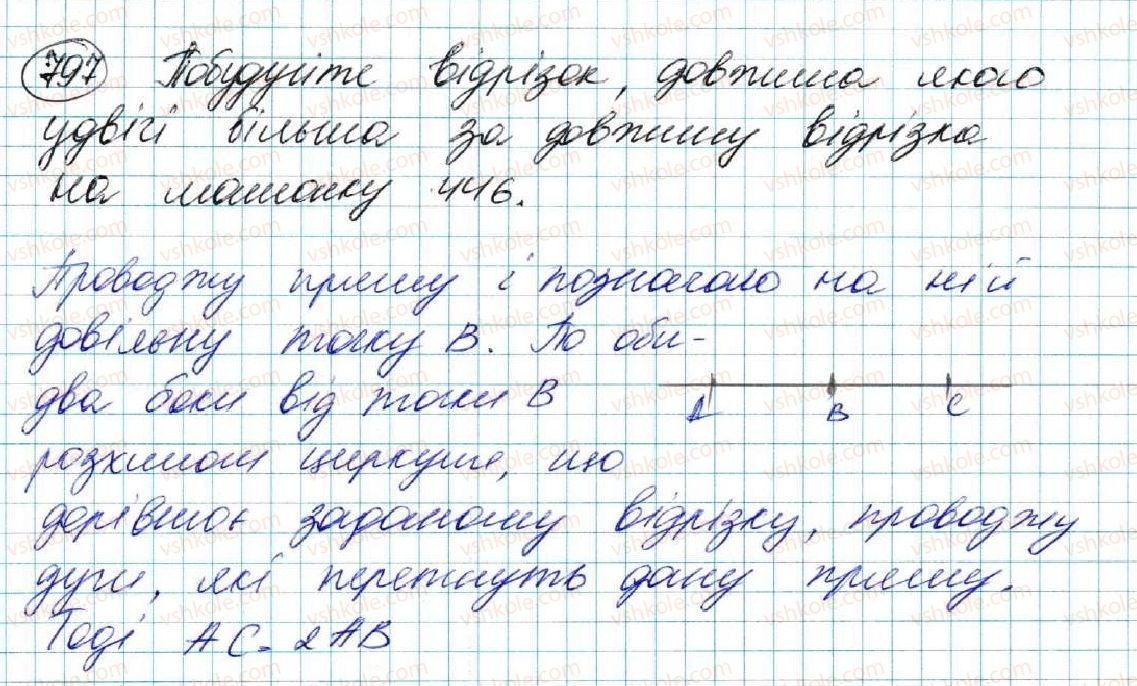 797 Побудуйте відрізок, довжина якого
удвічі більша за довжину відрізка
на малюнку 446.
Проводжу пряму і позначаю на ній
довільну точку В. По оби-
два боки від точки В
розхилом циркуля, що
дорівнює заданому відрізку, проводжу
дуги, які перетнуть дану пряму.
Тоді AC = 2AB
A B C
vshkole.com